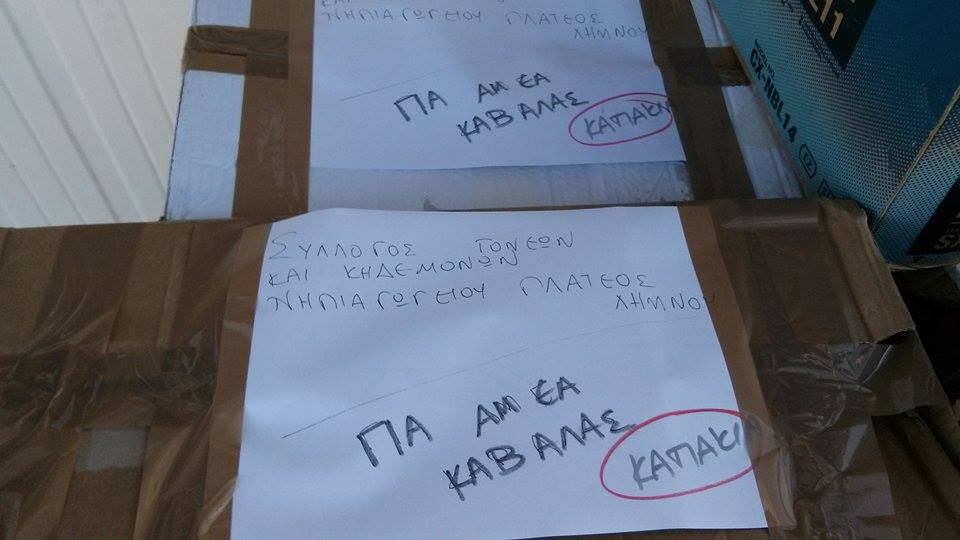 ΝΗΠΙΑΓΩΓΕΙΟΥ ΠΛΑΤΕΟΣ
ΛΗΜΝΟΥ
ΓΙΑ ΑΜΕΑ
ΚΑΒΑΛΑΣ
ΚΑΠΑΚΙ
CX-NBL14
ΣΥΛΛΟΓΟΣ ΓΟΝΕΩΝ
ΚΑΙ ΚΗΔΕΜΟΝΩΝ
ΝΗΠΙΑΓΩΓΕΙΟΥ ΠΛΑΤΕΟΣ
ΛΗΜΝΟΥ
ΓΙΑ ΑΜΕΑ
ΚΑΒΑΛΑΣ
ΚΑΠΑΚΙ